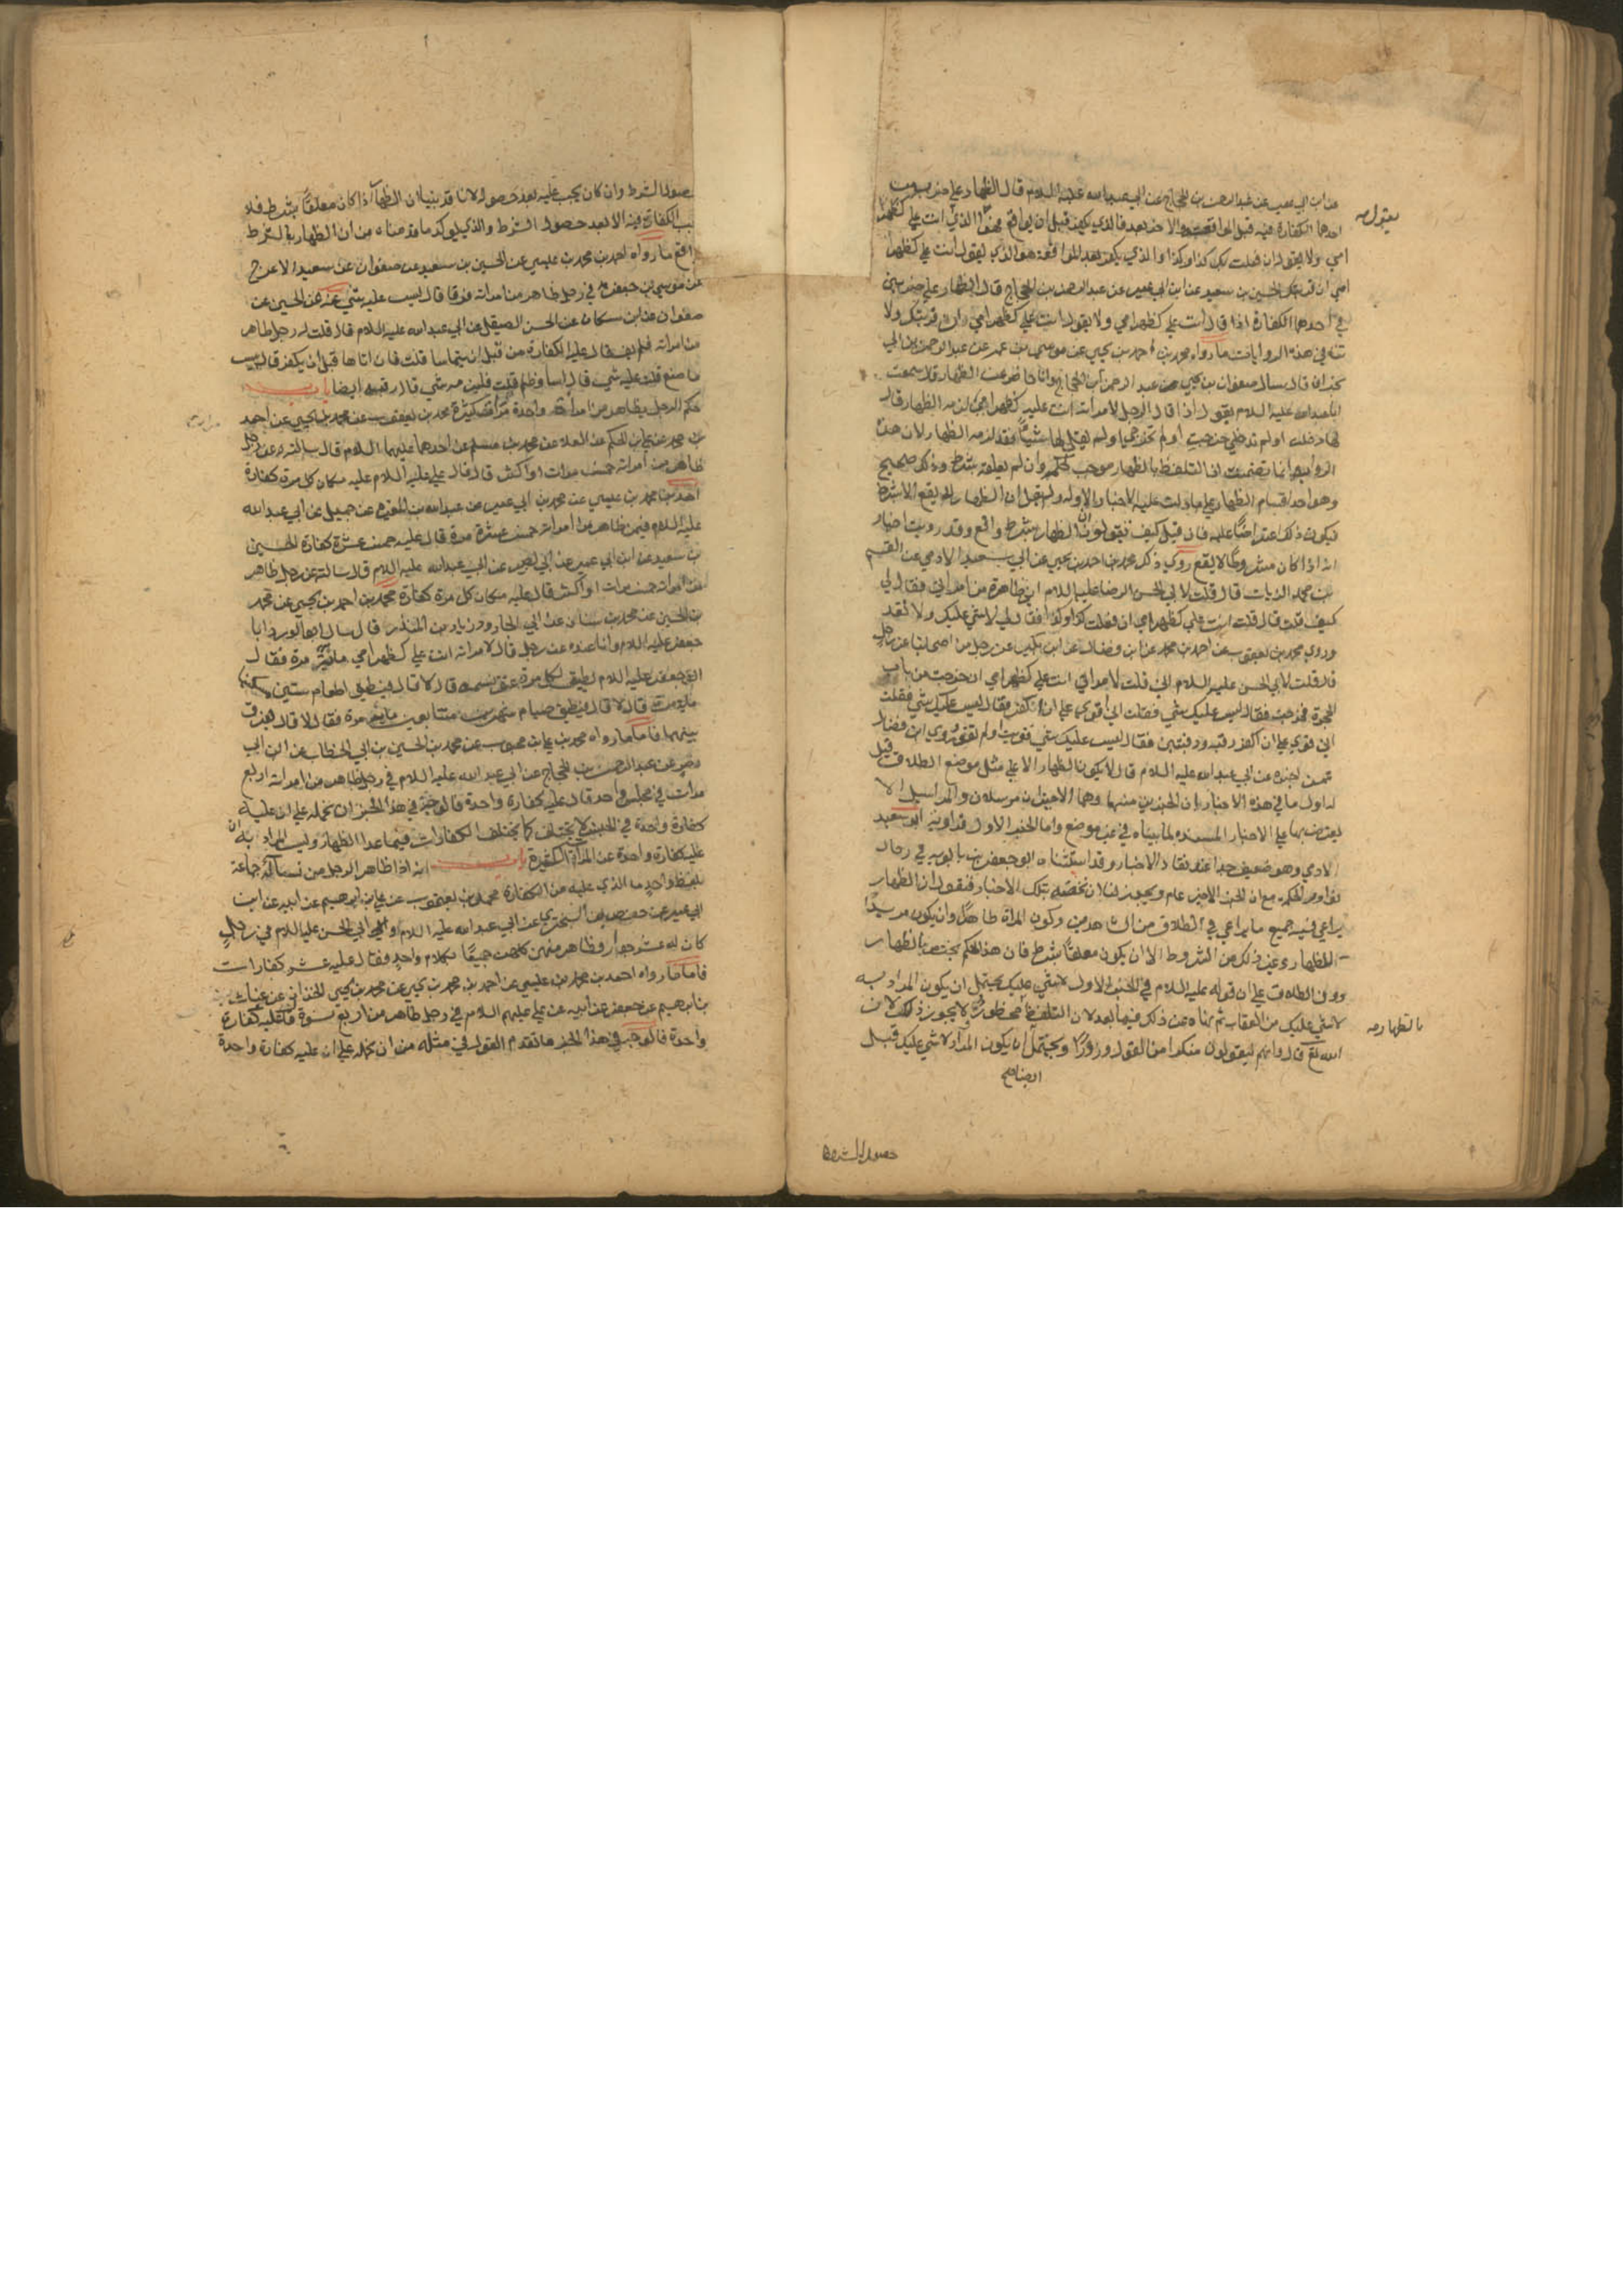 عن ابن ابي عمير عن عبد الرحمن بن الحجاج عن ابي عبد الله عليه السلام قال الظهار على ضربين
احدهما الكفارة فيه قبل المواقعة والاخر بعد فالذي يكفر قبل ان يواقع فهو الذي انت علي كظهر
يقول صح
امي ولا يقول ان فعلت بك كذا وكذا والذي يكفر بعد المواقعة هو الذي يقول انت علي كظهر
امي ان قربتك الحسين بن سعيد عن ابن ابي عمير عن عبد الرحمن بن الحجاج قال الظهار على ضربين
في احدهما الكفارة اذا قال انت علي كظهر امي ولا يقول انت علي كظهر امي ان قربتك ولا
تنافي هذه الروايات ما رواه محمد بن احمد بن يحيى عن موسى بن عمر عن عبد الرحمن بن ابي
نجران قال سال صفوان بن يحيى عن عبد الرحمن بن الحجاج وانا حاضر عن الظهار قال سمعت
ابا عبد الله عليه السلام يقول اذا قال الرجل لامراته انت عليه كظهر امي لزمه الظهار قال
لها دخلت او لم تدخلي خرجت او لم تخرجي او لم يقل لها شيئا فقد لزمه الظهار لان هذه
الرواية انما تضمنت ان التلفظ بالظهار موجب لحكمه وان لم يعلقه بشرط وذلك صحيح
وهو احد اقسام الظهار على ما دلت عليه الاخبار الاوله ولم يقل ان الظهار لا يقع الا بشرط
فيكون ذلك اعتراضا عليه فان قيل كيف تقولون ان الظهار بشرط واقع وقد رويت اخبار
انه اذا كان مشروطا لا يقع روى ذلك محمد بن احمد بن يحيى عن ابي سعيد الادمي عن القسم
بن محمد الزيات قال قلت لابي الحسن الرضا عليه السلام اني ظاهرت من امراتي فقال لي
كيف قلت قال قلت انت علي كظهر امي ان فعلت كذا وكذا فقال لي لا شي عليك ولا تعد
وروى محمد بن يعقوب عن احمد بن محمد عن ابن فضال عن ابن بكير عن رجل من اصحابنا عن رجل
قال قلت لابي الحسن عليه السلام اني قلت لامراتي انت علي كظهر امي ان خرجت من باب
الحجرة فخرجت فقال ليس عليك شي فقلت اني اقوى على ان اكفر فقال ليس عليك شي فقلت
اني قوي على ان اكفر رقبة ورقبتين فقال ليس عليك شي قويت او لم تقو وروى ابن فضال
عمن اخبره عن ابي عبد الله عليه السلام قال لا يكون الظهار الا على مثل موضع الطلاق قيل
له اول ما في هذه الاخبار ان الخبرين منها وهما الاخيران مرسلان والمراسيل لا
يعترض بها على الاخبار المسنده لما بيناه في غير موضع واما الخبر الاول فراويه ابو سعيد
الادمي وهو ضعيف جدا عند نقاد الاخبار وقد استثناه ابو جعفر بن بابويه في رجال
نوادر الحكمة مع ان الخبر الاخير عام ويجوز لنا ان نخصه بتلك الاخبار فنقول ان الظهار
يراعي فيه جميع ما يراعي في الطلاق من الشاهدين وكون المراة طاهرا وان يكون مريدا
للظهار وغير ذلك من الشروط الا ان يكون معلقا بشرط فان هذا الحكم يختص بالظهار
دون الطلاق على ان قوله عليه السلام في الخبر الاول لا شي عليك يحتمل ان يكون المراد به
لا شي عليك من العقاب ثم نهاه عن ذلك فيما بعد لان التلفظ محظور لا يجوز ذلك لان
بالظهار صح
الله تع قال وانهم ليقولون منكرا من القول وزورا ويحتمل ان يكون المراد لا شي عليك قبل
ايضا
حصول الشرط
حصول الشرط وان كان يجب عليه بعد حصوله لانا قد بينا ان الظهار اذا كان معلقا بشرط فلا
يجب الكفارة فيه الا بعد حصول الشرط والذي يؤكد ما قدمناه من ان الظهار بالشرط
واقع ما رواه احمد بن محمد بن عيسى عن الحسين بن سعيد عن صفوان عن سعيد الاعرج
عن موسى بن جعفر في رجل ظاهر من امراته فوفا قال ليس عليه شي عنه عن الحسين عن
صفوان عن ابن مسكان عن الحسن الصيقل عن ابي عبد الله عليه السلام قال قلت له رجل ظاهر
من امراته فلم يف قال عليه الكفارة من قبل ان يتماسا قلت فان اتاها قبل ان يكفر قال بئس
ما صنع قلت عليه شي قال اسا وظلم قلت فيلزمه شي قال رقبة ايضا باب
حكم الرجل يظاهر من امراة واحدة مرات كثيرة محمد بن يعقوب عن محمد بن يحيى عن احمد
بن محمد عن علي بن الحكم عن العلا عن محمد بن مسلم عن احدهما عليهما السلام قال سالته عن رجل
ظاهر من امراته خمس مرات او اكثر قال قال علي عليه السلام عليه مكان كل مرة كفارة
احمد بن محمد بن عيسى عن محمد بن ابي عمير عن عبد الله بن المغيرة عن جميل عن ابي عبد الله
عليه السلام فيمن ظاهر من امراته خمس عشرة مرة قال عليه خمس عشرة كفارة الحسين
بن سعيد عن ابن ابي عمير عن ابي بصير عن ابي عبد الله عليه السلام قال سالته عن رجل ظاهر
من امراته خمس مرات او اكثر قال عليه مكان كل مرة كفارة محمد بن احمد بن يحيى عن محمد
بن الحسين عن محمد بن سنان عن ابي الجارود زياد بن المنذر قال سال ابو الورد ابا
جعفر عليه السلام وانا عنده عن رجل قال لامراته انت علي كظهر امي مائة مرة فقال
ابو جعفر عليه السلام يطيق لكل مرة عتق نسمة قال لا قال فيطيق اطعام ستين مسكينا
مائة مرة قال لا قال فيطيق صيام شهرين متتابعين مائة مرة فقال لا قال يفرق
بينهما فاما ما رواه محمد بن علي بن محبوب عن محمد بن الحسين بن ابي الخطاب عن ابن ابي
نصر عن عبد الرحمن بن الحجاج عن ابي عبد الله عليه السلام في رجل ظاهر من امراته اربع
مرات في مجلس واحد قال عليه كفارة واحدة فالوجه في هذا الخبر ان نحمله على ان عليه
كفارة واحدة في الجنس لا يختلف كما يختلف الكفارات فيما عدا الظهار وليس المراد به ان
عليه كفارة واحدة عن المرات الكثيرة باب انه اذا ظاهر الرجل من نسائه جماعة
بلفظ واحد ما الذي عليه من الكفارة محمد بن يعقوب عن علي بن ابرهيم عن ابيه عن ابن
ابي عمير عن حفص بن البختري عن ابي عبد الله عليه السلام او ابي الحسن عليه السلام في رجل
كان له عشر جوار فظاهر منهن كلهن جميعا بكلام واحد فقال عليه عشر كفارات
فاما ما رواه احمد بن محمد بن عيسى عن احمد بن محمد بن يحيى عن محمد بن يحيى الخزاز عن غياث
بن ابرهيم عن جعفر عن ابيه عن علي عليهم السلام في رجل ظاهر من اربع نسوة قال عليه كفارة
واحدة فالوجه في هذا الخبر ما تقدم القول في مثله من ان نحمله على ان عليه كفارة واحدة